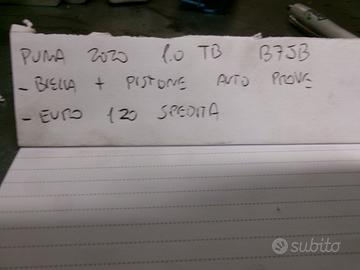 PUMA 2020 1.0 TB B7JB
- BIELLA + PISTONE AUTO PROVE
- EURO 120 SPEDITA
subito